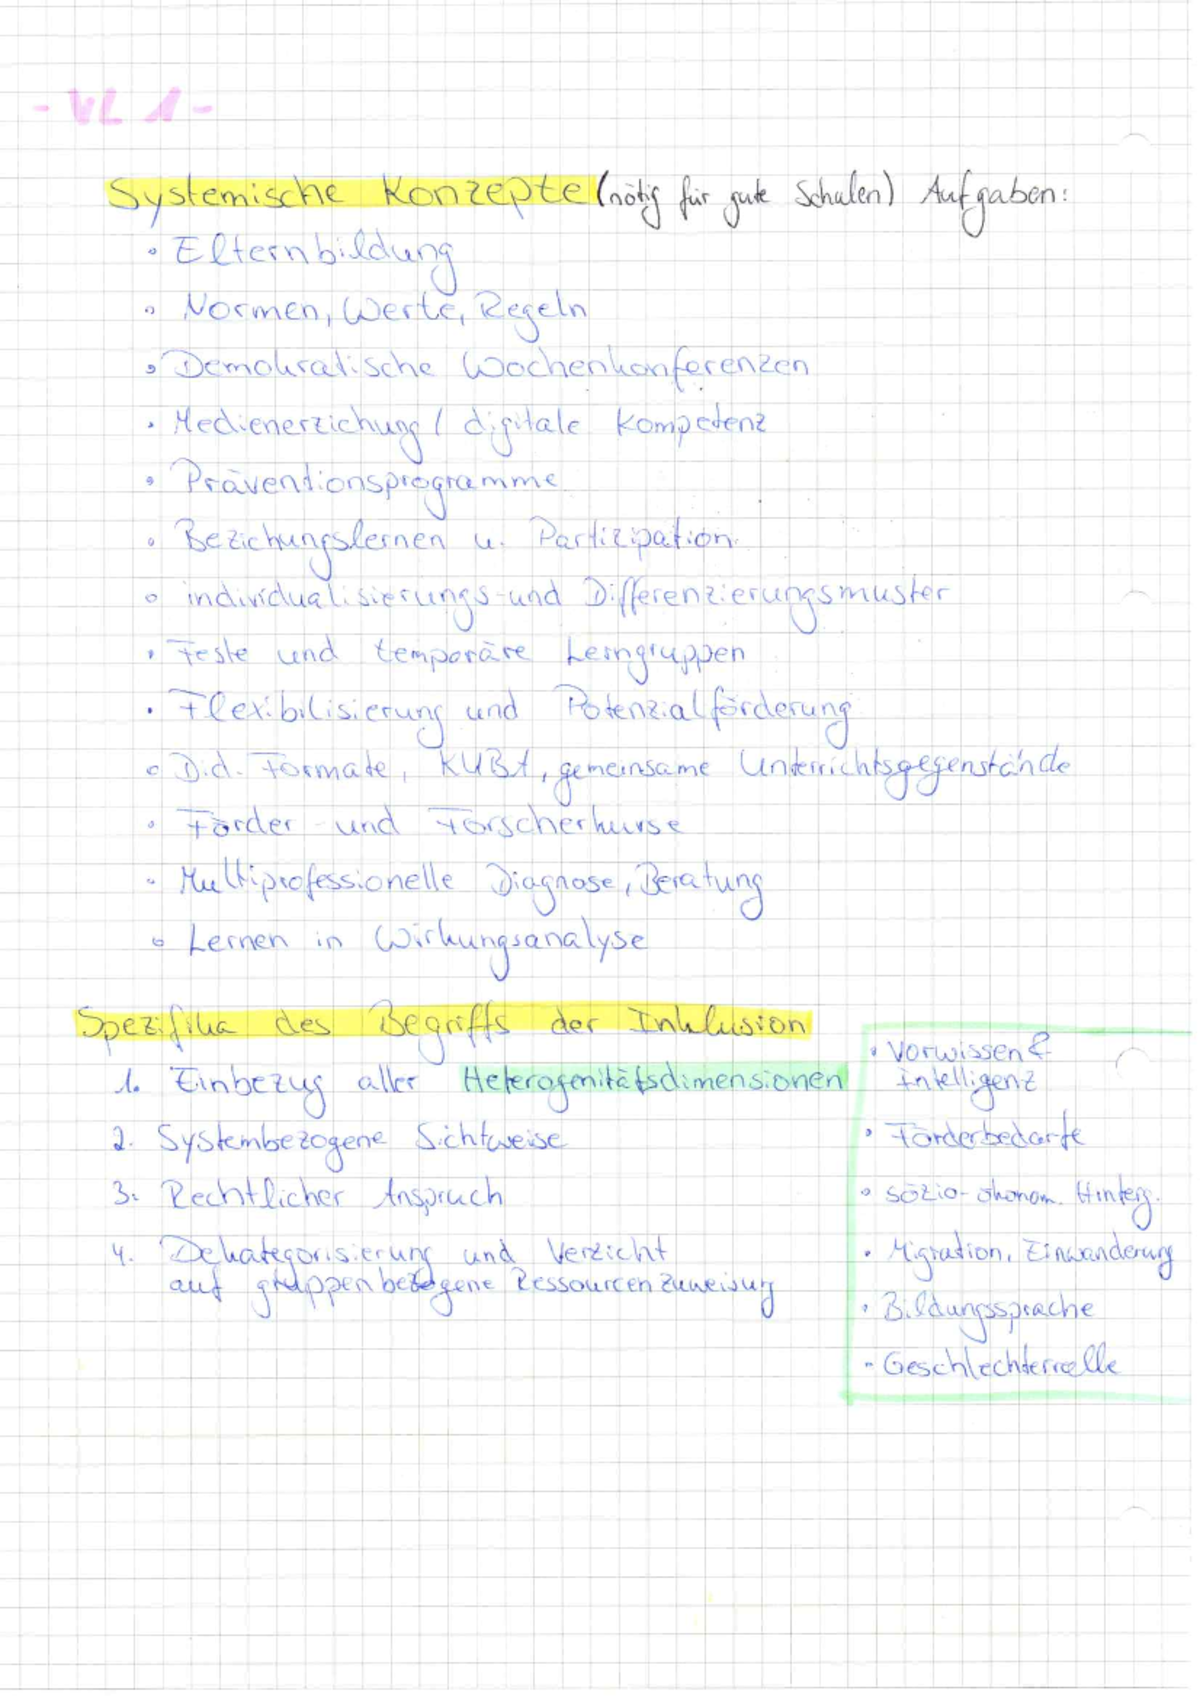 - VL 1 -
Systemische Konzepte (nötig für gute Schulen) Aufgaben:
• Elternbildung
• Normen, Werte, Regeln
• Demokratische Wochenkonferenzen
• Medienerziehung / digitale Kompetenz
• Präventionsprogramme
• Beziehungslernen u. Partizipation
• individualisierungs- und Differenzierungsmuster
• Feste und temporäre Lerngruppen
• Flexibilisierung und Potenzialförderung
• Did. Formate, KUBA, gemeinsame Unterrichtsgegenstände
• Förder- und Forscherkurse
• Multiprofessionelle Diagnose, Beratung
• Lernen in Wirkungsanalyse
Spezifika des Begriffs der Inklusion
1. Einbezug aller Heterogenitätsdimensionen
2. Systembezogene Sichtweise
3. Rechtlicher Anspruch
4. Dekategorisierung und Verzicht
auf gruppenbezogene Ressourcenzuweisung
• Vorwissen &
Intelligenz
• Förderbedarfe
• sozio-ökonom. Hinterg.
• Migration, Einwanderung
• Bildungssprache
- Geschlechterrolle